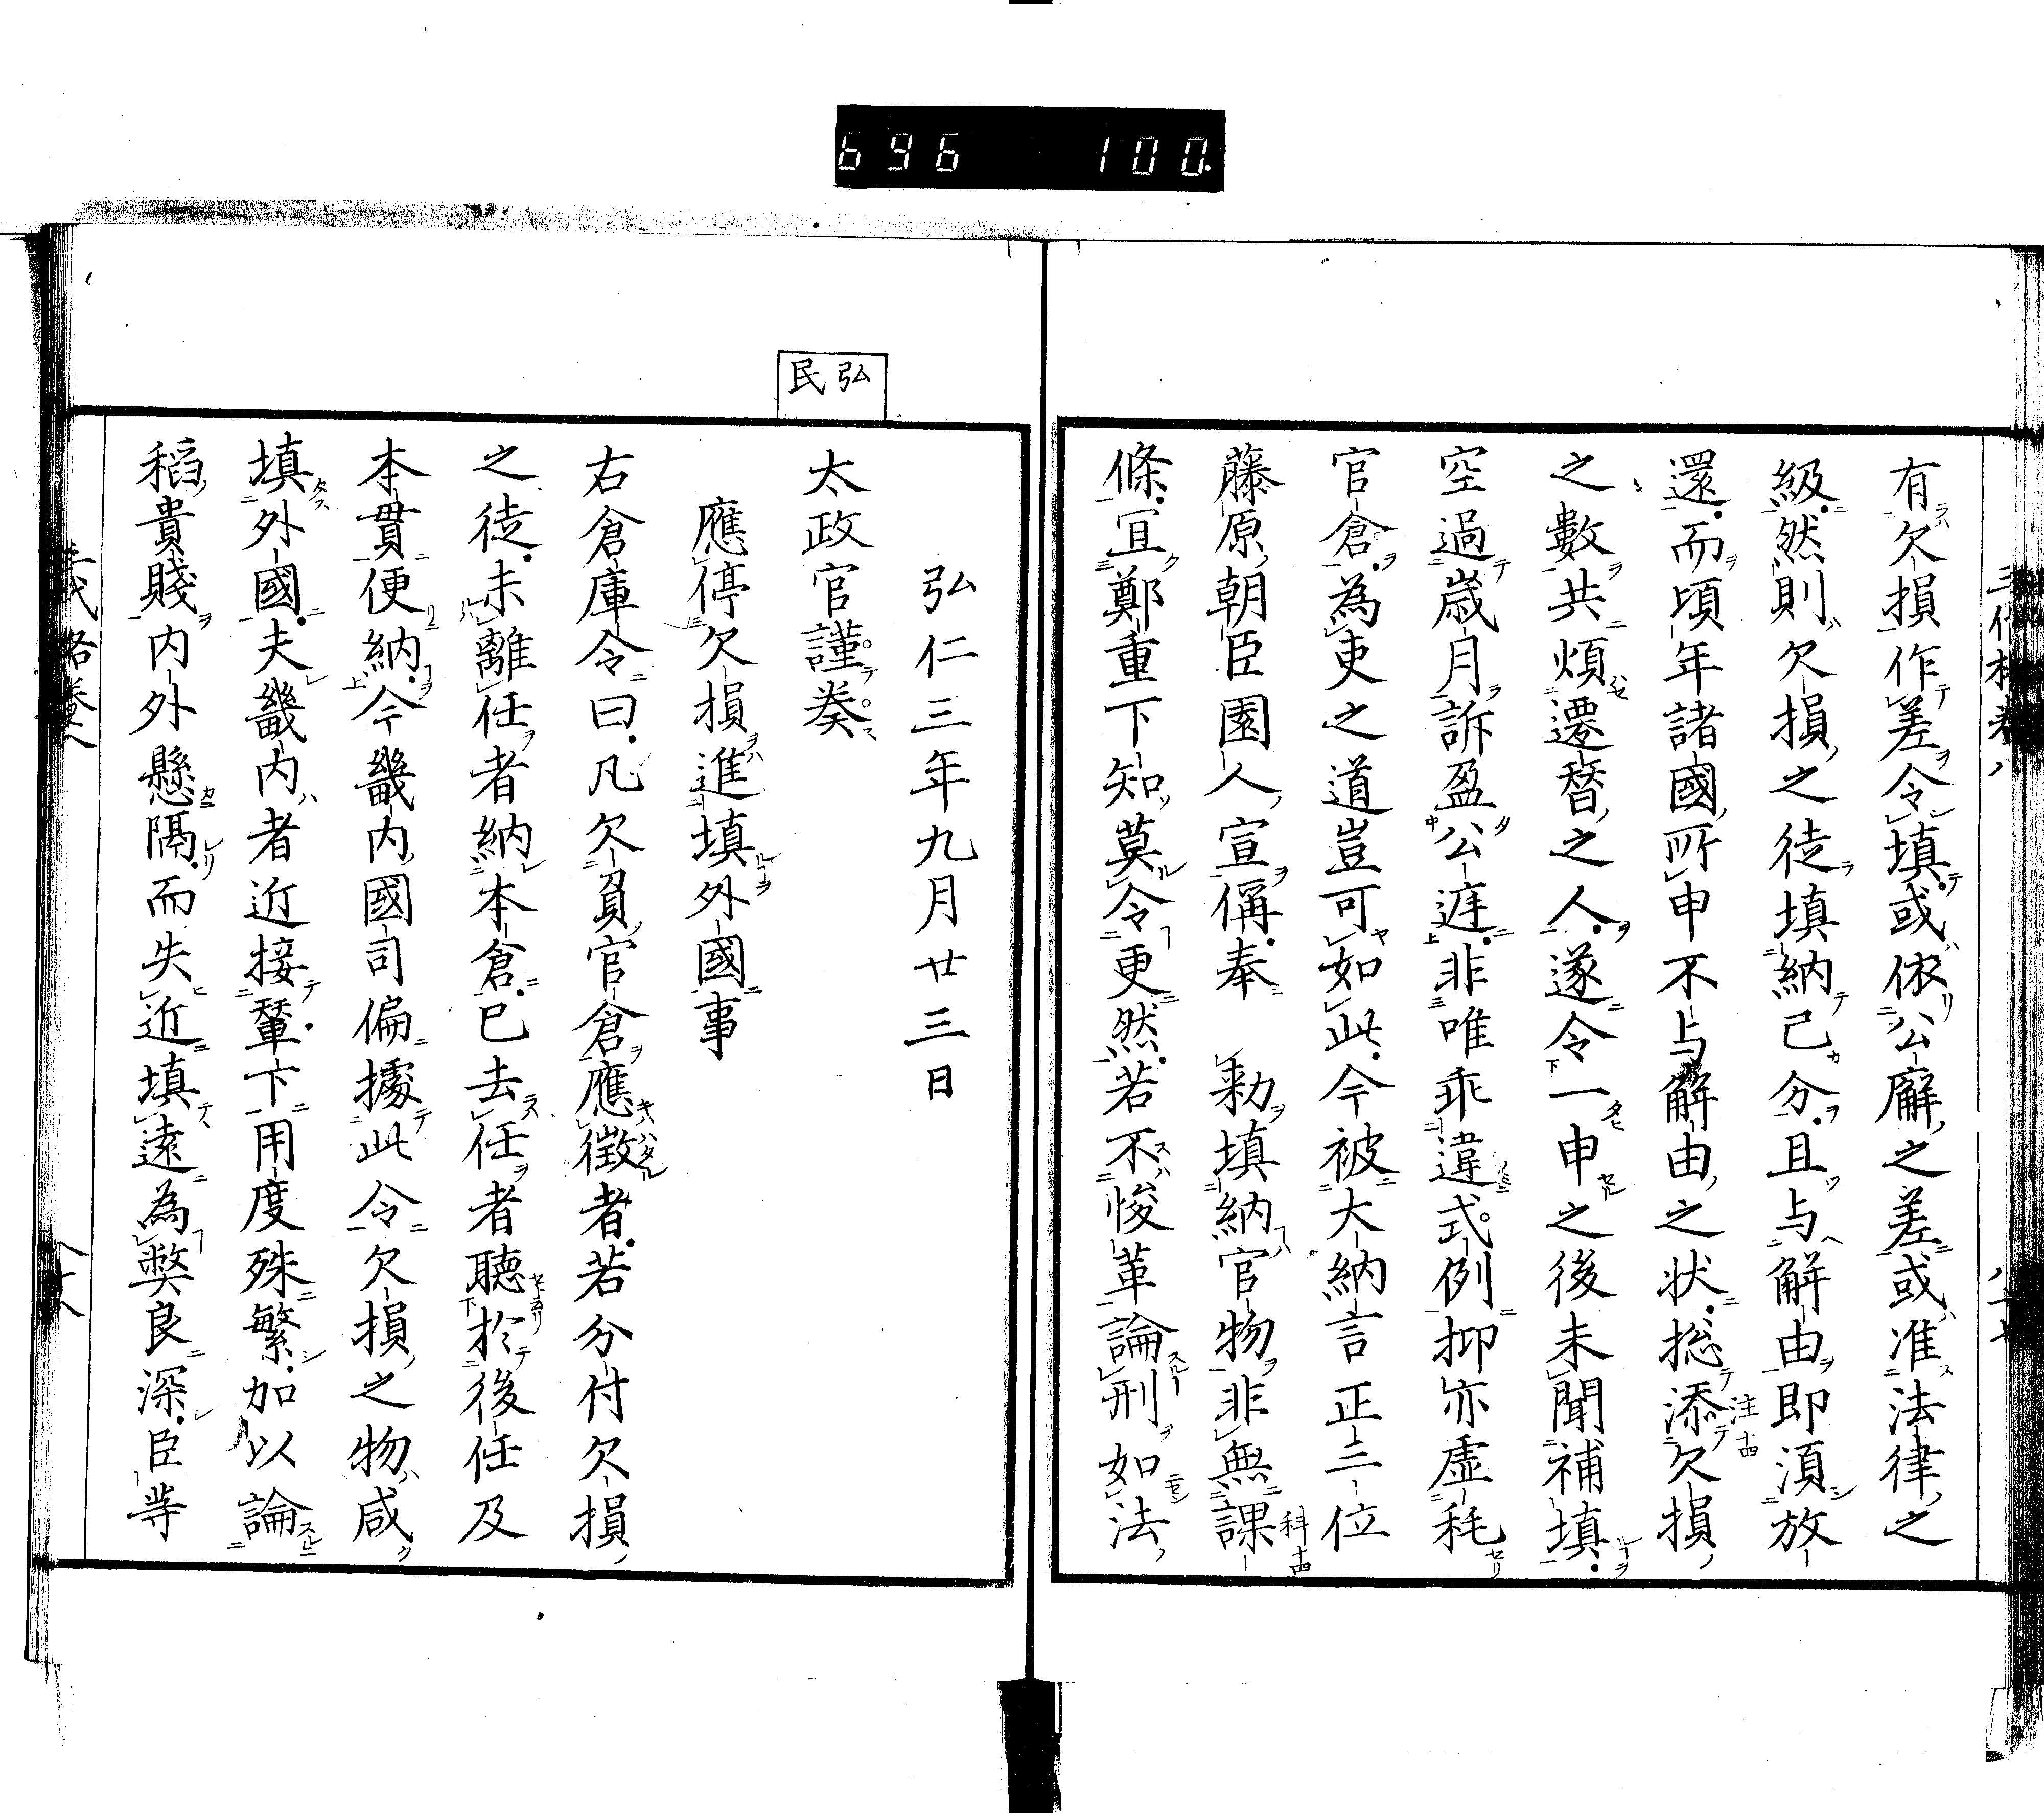 696 100.
有欠損作差令填或依公廨之差或准法律之
級然則欠損之徒填納已分且与解由即湏放
還而頃年諸國所申不与解由之状捴添欠損
之數共煩遷替之人遂令一申之後未聞補填
空過歳月訴盈公遅非唯乖違式例抑亦虚耗
官倉為吏之道豈可如此今被大納言正三位
藤原朝臣園人宣偁奉 勅填納官物非無課
條宜鄭重下知莫令更然若不悛革論刑如法
弘仁三年九月廿三日
弘民
太政官謹奏
應停欠損進填外國事
右倉庫令曰凡欠負官倉應徴者若分付欠損
之徒未離任者納本倉已去任者聽於後任及
本貫便納今畿内國司偏據此令欠損之物咸
填外國夫畿内者近接輦下用度殊繁加以論
稻貴賤内外懸隔而失近填遠為弊良深臣等